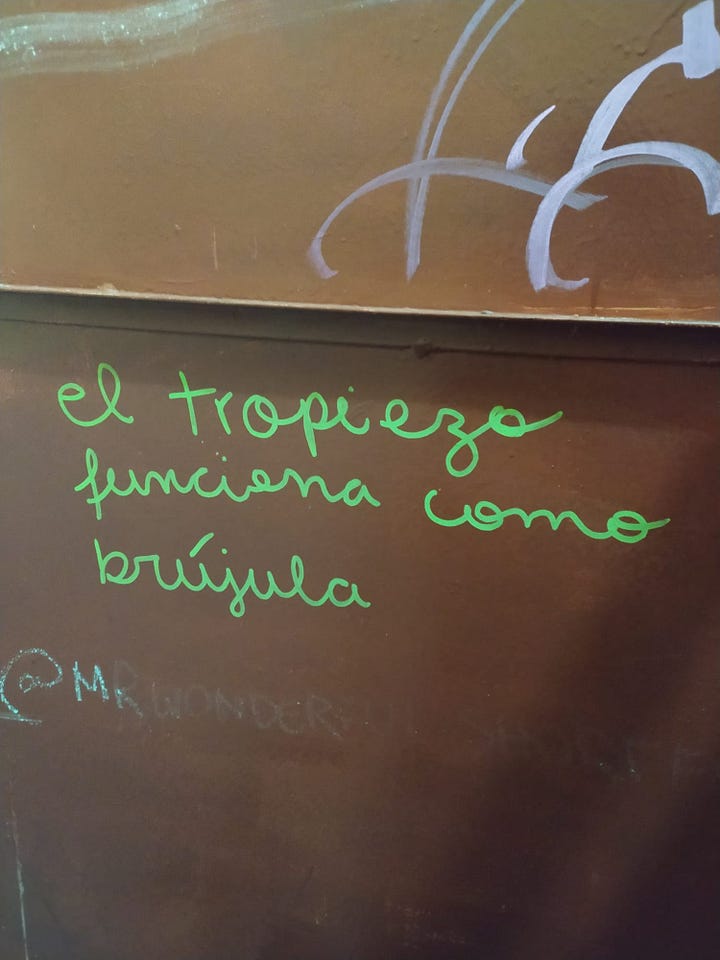 el tropiezo
funciona como
brújula
@MRWONDERFUL